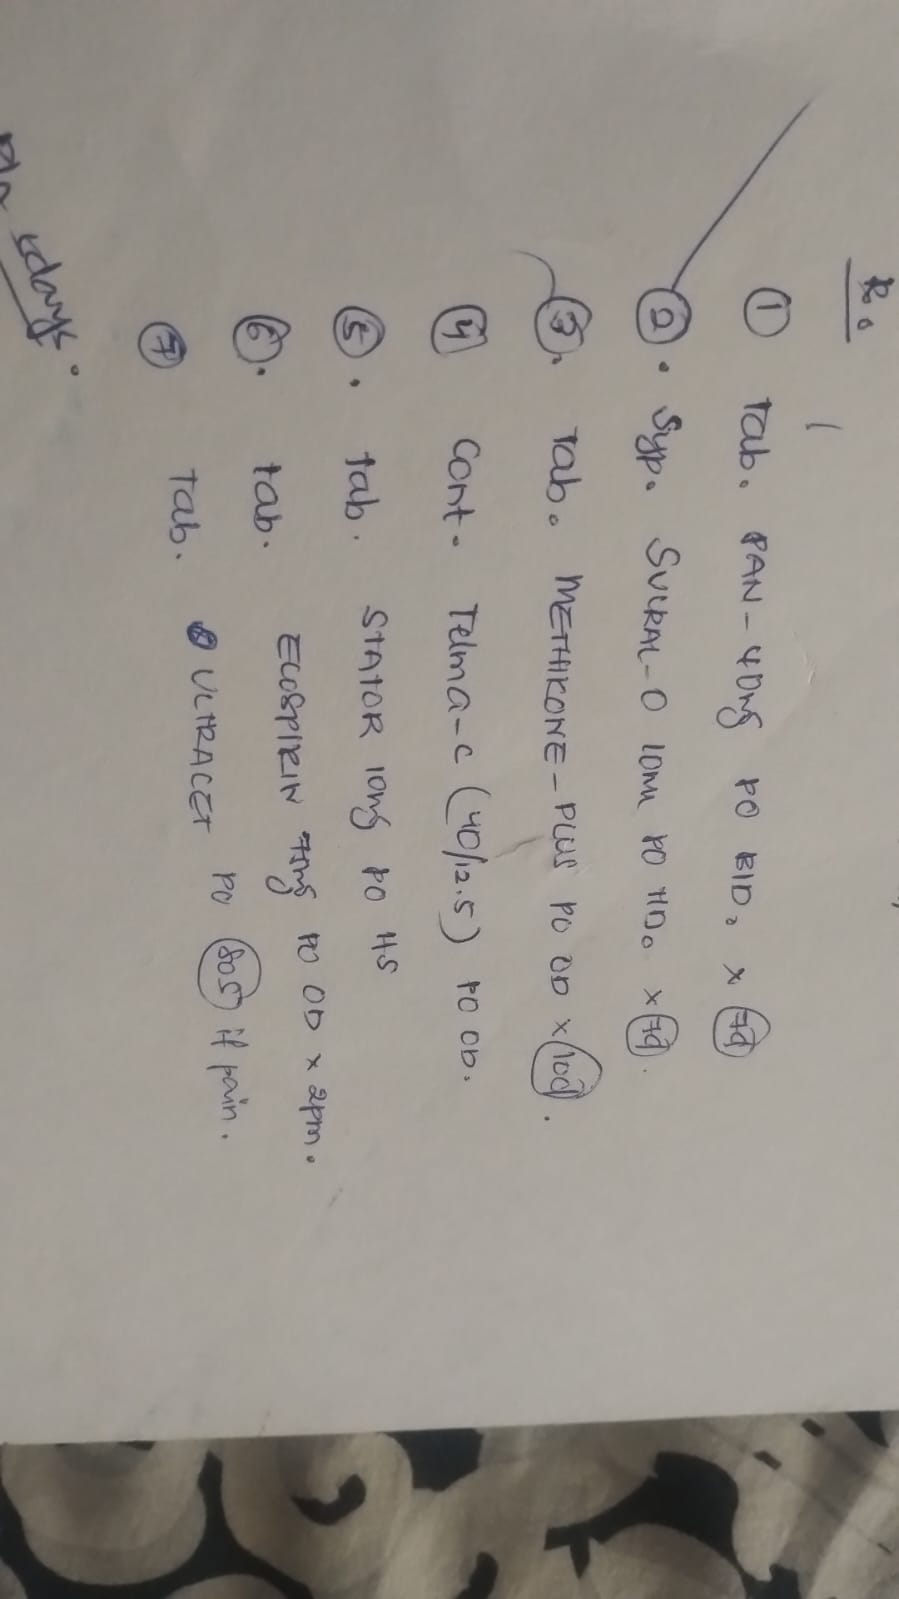 Rx
① Tab. PAN-40mg PO BID. x 7d
②. Syp. SUCRAL-O 10ml PO HD. x 7d.
③. Tab. METHIKONE-PLUS PO OD x 10d.
④ Cont. Telma-C (40/12.5) PO OD.
⑤. Tab. STATOR 10mg PO HS
⑥. Tab. ECOSPIRIN 75mg PO OD x 2pm.
⑦ Tab. ULTRACET PO SOS if pain.
days.